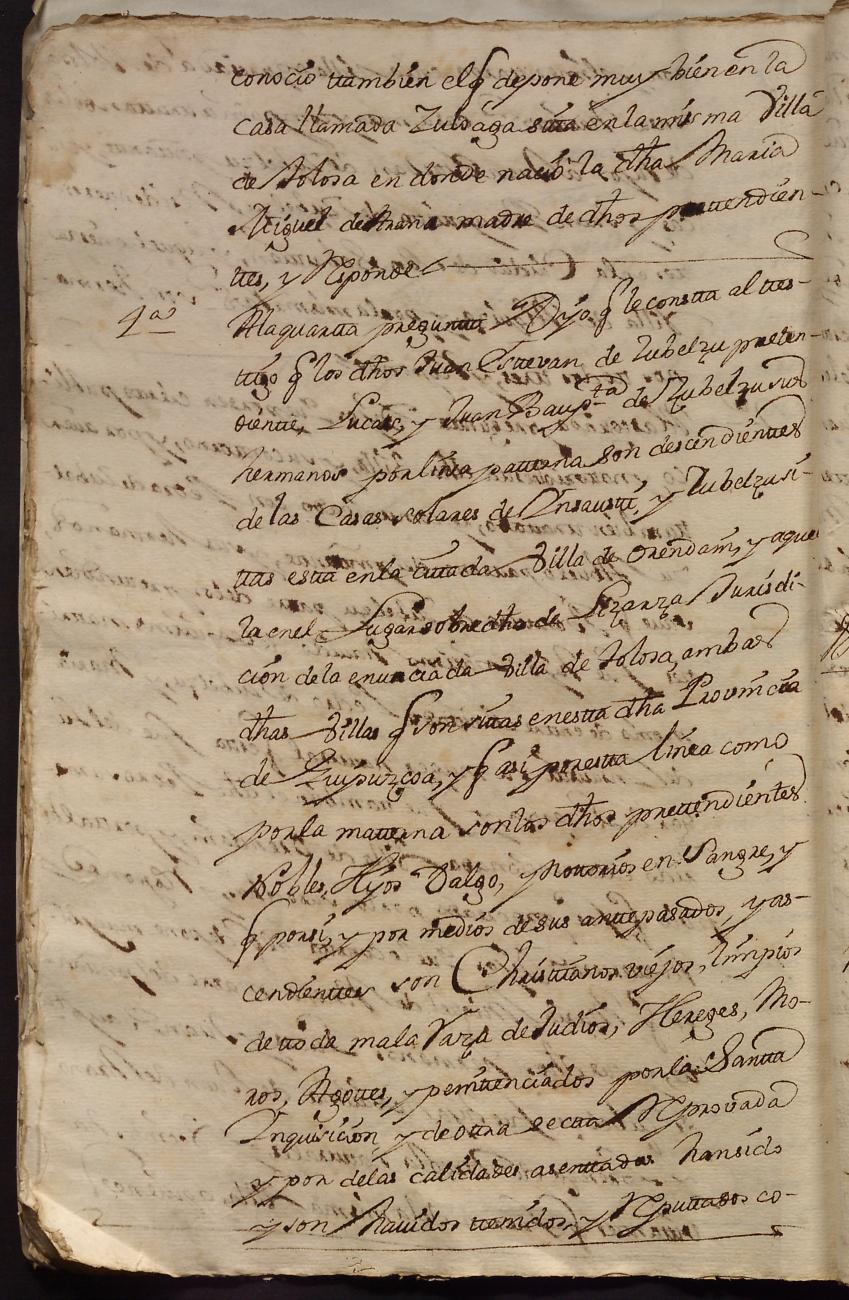 conocio ttambien el q̃ depone muy bien en la
casa llamada Zuloaga sitta en la misma Villa
de Tolosa en donde nacio la dha Maria
Miguel de Arana madre de dhos prettendien-
ttes, y Responde
4ª
A la quartta pregunta Dijo q̃ le constta al ttes-
ttigo q̃ los dhos Juan Esttevan de Zubelzu pretten-
diente, Lucas, y Juan Bauptta de Zubelzu sus
hermanos por linia patterna son descendienttes
de las Casas solares de Insaustti, y Zubelzu si-
ttas estta en la cittada Villa de Orendain, y aque
lla en el Lugar sobre dho de Lizarza Jurisdi-
cion de la enunciada Villa de Tolosa, ambas
dhas Villas q̃ son sittas en estta dha Provincia
de Guipuzcoa, y q̃ asi por estta linea como
por la matterna son los dhos prettendientes
Nobles, Hijos Dalgo, y Nottorios en Sangre, y
q̃ por si, y por medios de sus anttepasados, y as-
cendienttes son Christtianos viejos, limpios
de tto de mala Raza de Judios, Hereges, Mo-
ros, Agottes, y penittenciados por la Santta
Inquisicion y de ottra Sectta Reprovada
y por de las calidades asenttadas han sido
y son havidos ttenidos, y Reputtados co-